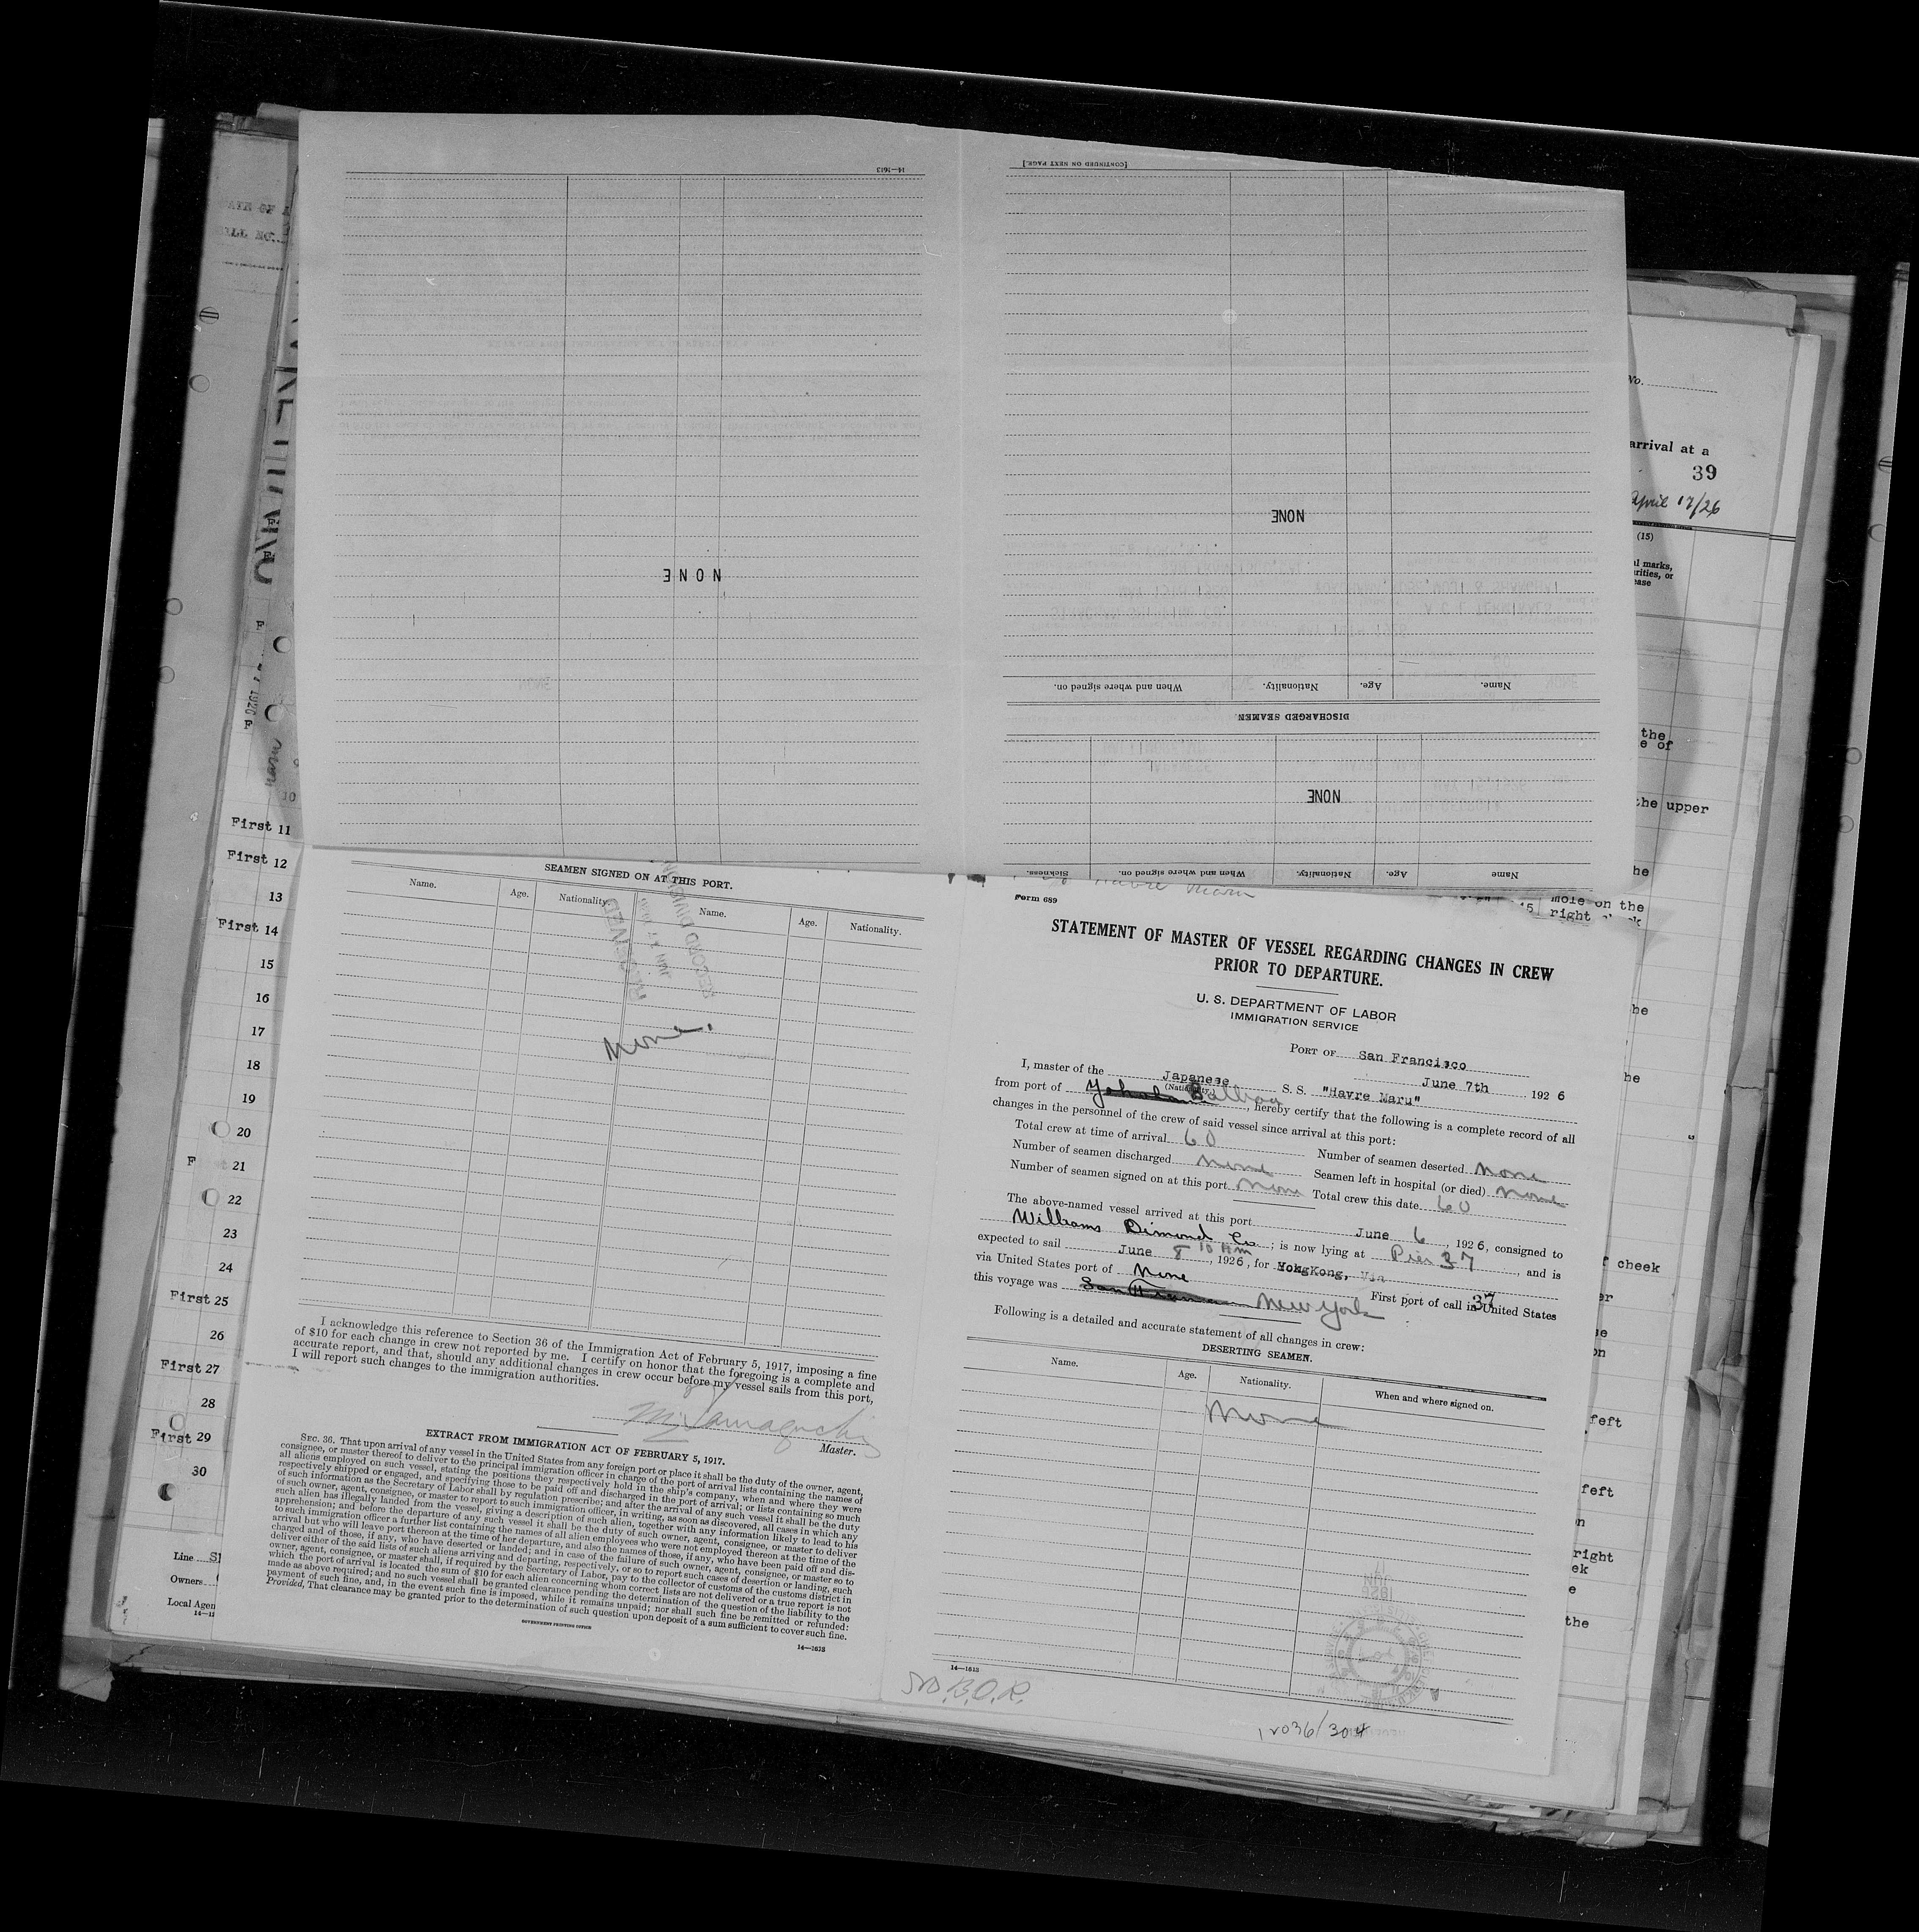 14—1613
[CONTINUED ON NEXT PAGE.]
NONE
NONE
When and where signed on. Nationality. Age. Name.
DISCHARGED SEAMEN.
NONE
Sickness. When and where signed on. Nationality. Age. Name
No.
arrival at a
39
April 17/26
(15)
the
e of
the upper
he
mole on the
right
he
he
cheek
er
he
on
left
left
on
right
ek
e
the
First 11
First 12
13
First 14
15
16
17
18
19
20
21
22
23
24
First 25
26
First 27
28
First 29
30
Line
Owners
Local Agen
SEAMEN SIGNED ON AT THIS PORT.
Name. Age. Nationality. Name. Age. Nationality.
RECEIVED
RECORD DIVISION
None.
I acknowledge this reference to Section 36 of the Immigration Act of February 5, 1917, imposing a fine
of $10 for each change in crew not reported by me. I certify on honor that the foregoing is a complete and
accurate report, and that, should any additional changes in crew occur before my vessel sails from this port,
I will report such changes to the immigration authorities.
M. Yamaguchi
Master.
EXTRACT FROM IMMIGRATION ACT OF FEBRUARY 5, 1917.
SEC. 36. That upon arrival of any vessel in the United States from any foreign port or place it shall be the duty of the owner, agent,
consignee, or master thereof to deliver to the principal immigration officer in charge of the port of arrival lists containing the names of
all aliens employed on such vessel, stating the positions they respectively hold in the ship's company, when and where they were
respectively shipped or engaged, and specifying those to be paid off and discharged in the port of arrival; or lists containing so much
of such information as the Secretary of Labor shall by regulation prescribe; and after the arrival of any such vessel it shall be the duty
of such owner, agent, consignee, or master to report to such immigration officer, in writing, as soon as discovered, all cases in which any
such alien has illegally landed from the vessel, giving a description of such alien, together with any information likely to lead to his
apprehension; and before the departure of any such vessel it shall be the duty of such owner, agent, consignee, or master to deliver
to such immigration officer a further list containing the names of all alien employees who were not employed thereon at the time of the
arrival but who will leave port thereon at the time of her departure, and also the names of those, if any, who have been paid off and dis-
charged and of those, if any, who have deserted or landed; and in case of the failure of such owner, agent, consignee, or master so to
deliver either of the said lists of such aliens arriving and departing, respectively, or so to report such cases of desertion or landing, such
owner, agent, consignee, or master shall, if required by the Secretary of Labor, pay to the collector of customs of the customs district in
which the port of arrival is located the sum of $10 for each alien concerning whom correct lists are not delivered or a true report is not
made as above required; and no such vessel shall be granted clearance pending the determination of the question of the liability to the
payment of such fine, and, in the event such fine is imposed, while it remains unpaid; nor shall such fine be remitted or refunded:
Provided, That clearance may be granted prior to the determination of such question upon deposit of a sum sufficient to cover such fine.
GOVERNMENT PRINTING OFFICE
14—1613
Form 689
STATEMENT OF MASTER OF VESSEL REGARDING CHANGES IN CREW
PRIOR TO DEPARTURE.
U. S. DEPARTMENT OF LABOR
IMMIGRATION SERVICE
PORT OF San Francisco
June 7th 1926
I, master of the Japanese S. S. "Havre Maru"
(Nationality.)
from port of Balboa, hereby certify that the following is a complete record of all
changes in the personnel of the crew of said vessel since arrival at this port:
Total crew at time of arrival 60 Number of seamen deserted none
Number of seamen discharged none Seamen left in hospital (or died) none
Number of seamen signed on at this port none Total crew this date 60
The above-named vessel arrived at this port June 6, 1926, consigned to
Williams Dimond Co; is now lying at Pier 37, and is
expected to sail June 8 10 Am, 1926, for HongKong, Via
via United States port of None First port of call in United States
37
this voyage was New York
Following is a detailed and accurate statement of all changes in crew:
DESERTING SEAMEN.
Name. Age. Nationality. When and where signed on.
None
14—1613
B.O.R.
12036/304